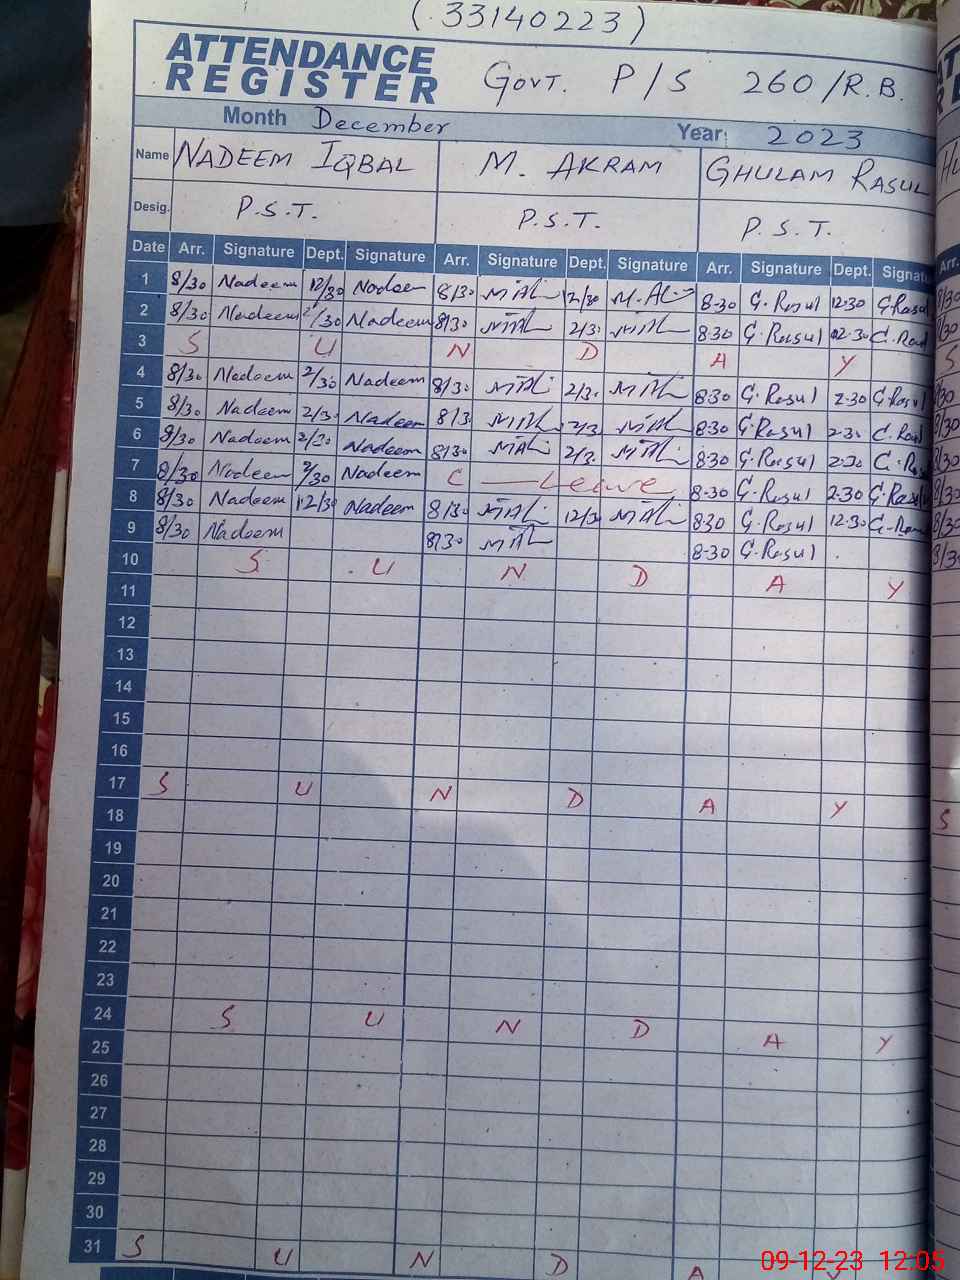 (33140223)
ATTENDANCE REGISTER Govt. P/S 260/R.B.
Month December Year: 2023
Name NADEEM IQBAL M. AKRAM GHULAM RASUL
Desig. P.S.T. P.S.T. P.S.T.
Date Arr. Signature Dept. Signature Arr. Signature Dept. Signature Arr. Signature Dept. Signat
1 8/30 Nadeem 12/30 Nadeem 8/30 12/30 8-30 G.Rasul 12-30 G.Rasul
2 8/30 Nadeem /30 Nadeem 8/30 2/3. 8-30 G.Rasul 12-30
3 S U N D A Y S
4 8/30 Nadeem 2/30 Nadeem 8/30 2/3. 8-30 G.Rasul 2-30 G.Rasul
5 8/30 Nadeem 2/3. Nadeem 8/3. 8-30 G.Rasul 2-3.
6 8/30 Nadeem 2/30 Nadeem 8/30 2/3. 8-30 G.Rasul 2-30
7 8/30 Nadeem 2/30 Nadeem C — Leave 8-30 G.Rasul 2-30 G.Rasul
8 8/30 Nadeem 12/30 Nadeem 8/30 12/3 8-30 G.Rasul 12-30
9 8/30 Nadeem 8/30 8-30 G.Rasul
10 S U N D A Y
11
12
13
14
15
16
17 S U N D A Y S
18
19
20
21
22
23
24 S U N D A Y
25
26
27
28
29
30
31 S U N D A Y
09-12-23 12:05